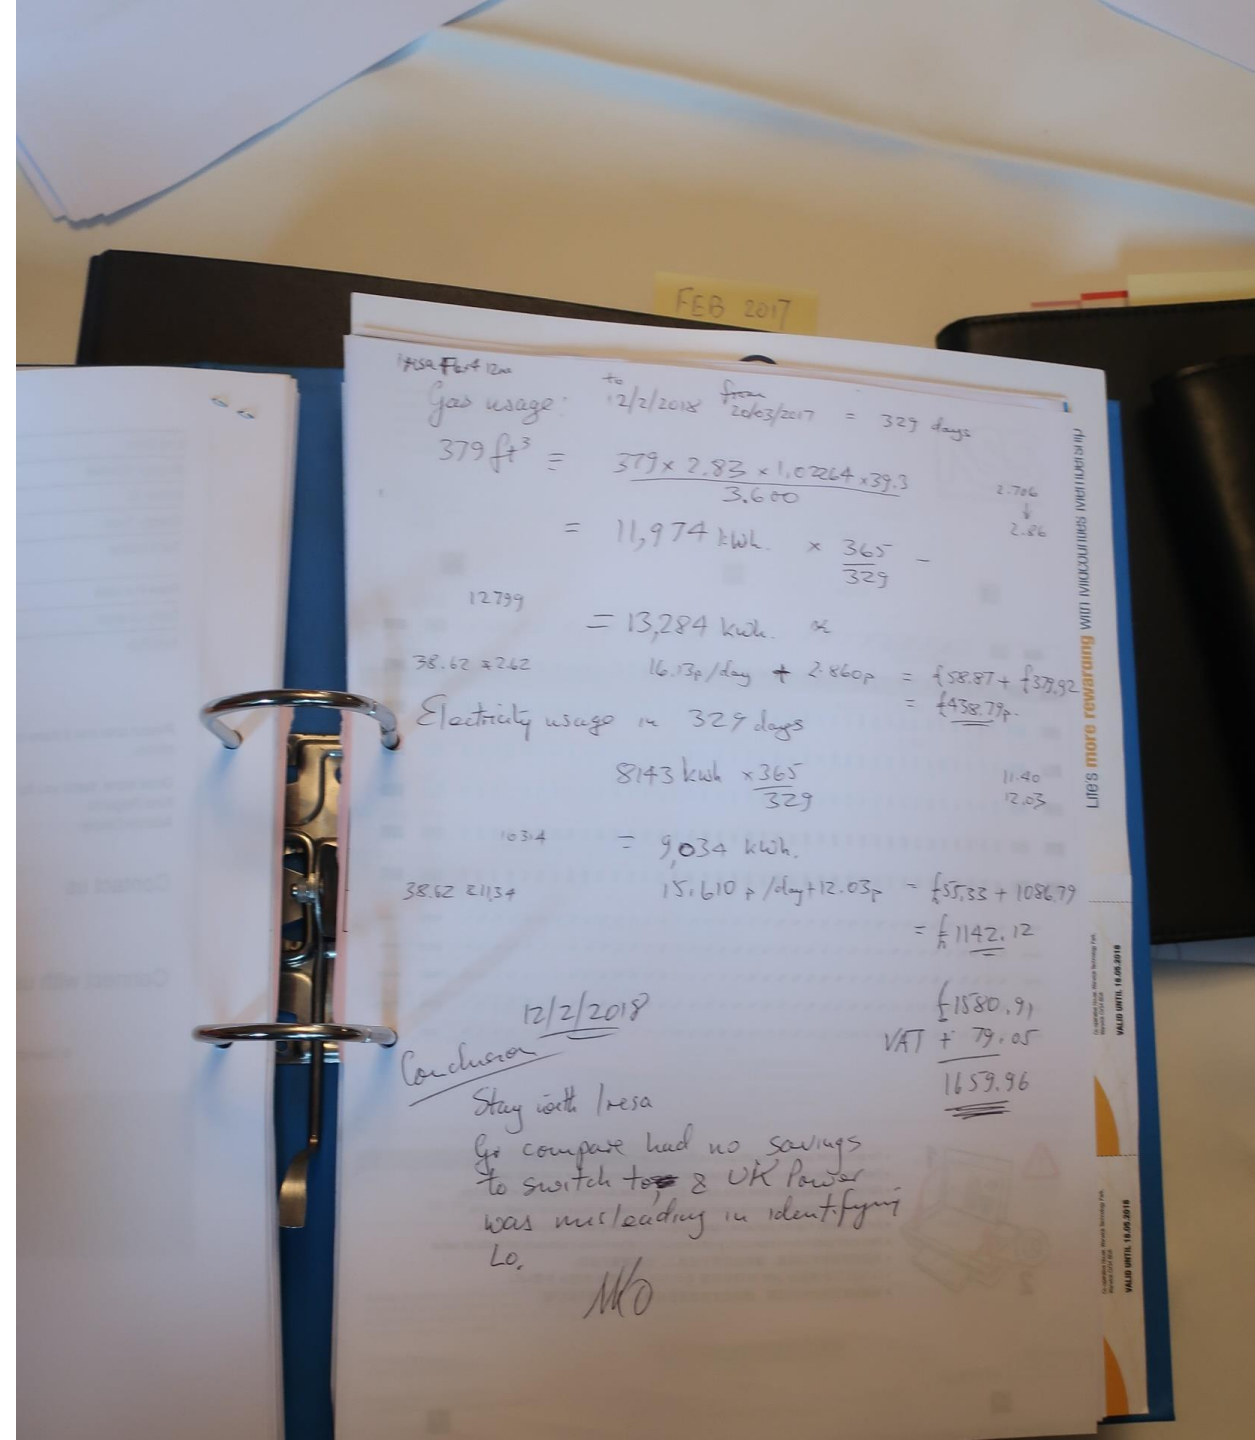 FEB 2017
Iresa Flex4 12m
Gas usage: to 12/2/2018 from 20/03/2017 = 329 days
379 ft³ = 379 x 2.83 x 1.02264 x 39.3
3.600
2.706
↓
2.86
= 11,974 kwh. x 365 –
329
12799
= 13,284 kwh.
38.62 2.62
16.13p/day + 2.860p = £58.87 + £379.92
= £438.79p.
Electricity usage in 329 days
8143 kwh x 365
329
11.40
12.03
10314
= 9,034 kwh.
38.62 11.34
15.610 p/day + 12.03p = £55.33 + 1086.79
= £1142.12
12/2/2018
£1580.91
VAT + 79.05
1659.96
Conclusion
Stay with Iresa
Go compare had no savings
to switch to, & UK Power
was misleading in identifying
Lo.
MKO
Life's more rewarding with Midcounties Membership
VALID UNTIL 18.05.2018
VALID UNTIL 18.05.2018